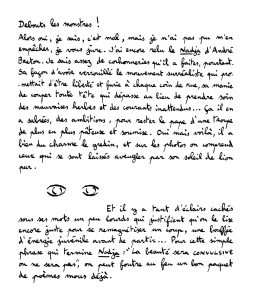 Debouts les monstres !
Alors oui, je sais, c'est mal, mais je n'ai pas pu m'en
empêcher, je vous jure. J'ai encore relu le Nadja d'André
Breton. Je sais assez de conhonneries qu'il a faites, pourtant.
Sa façon d'avoir verrouillé le mouvement surréaliste qui pro-
mettait d'être liberté et furie à chaque coin de rue, sa manie
de couper toute tête qui dépasse au lieu de prendre soin
des mauvaises herbes et des courants inattendus... Ça il en
a sabrées, des ambitions, pour rester le pape d'une troupe
de plus en plus pâteuse et soumise. Oui mais voilà, il a
bien du charme le gredin, et sur les photos on comprend
ceux qui se sont laissés aveugler par son soleil de lion
pur.
Et il y a tant d'éclairs cachés
sous ses mots un peu lourds qui justifient qu'on le lise
encore juste pour se remagnétiser un coup, une bouffée
d'énergie juvénile avant de partir... Pour cette simple
phrase qui termine Nadja : "La beauté sera CONVULSIVE
ou ne sera pas", on peut foutre au feu un bon paquet
de poèmes mous déjà.